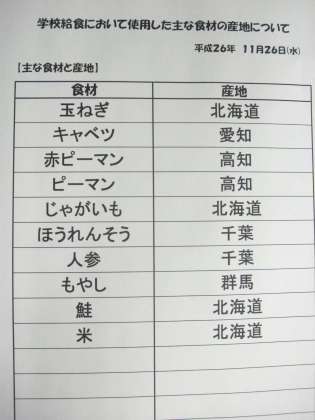 学校給食において使用した主な食材の産地について
平成26年 11月26日(水)
【主な食材と産地】
食材 産地
玉ねぎ 北海道
キャベツ 愛知
赤ピーマン 高知
ピーマン 高知
じゃがいも 北海道
ほうれんそう 千葉
人参 千葉
もやし 群馬
鮭 北海道
米 北海道